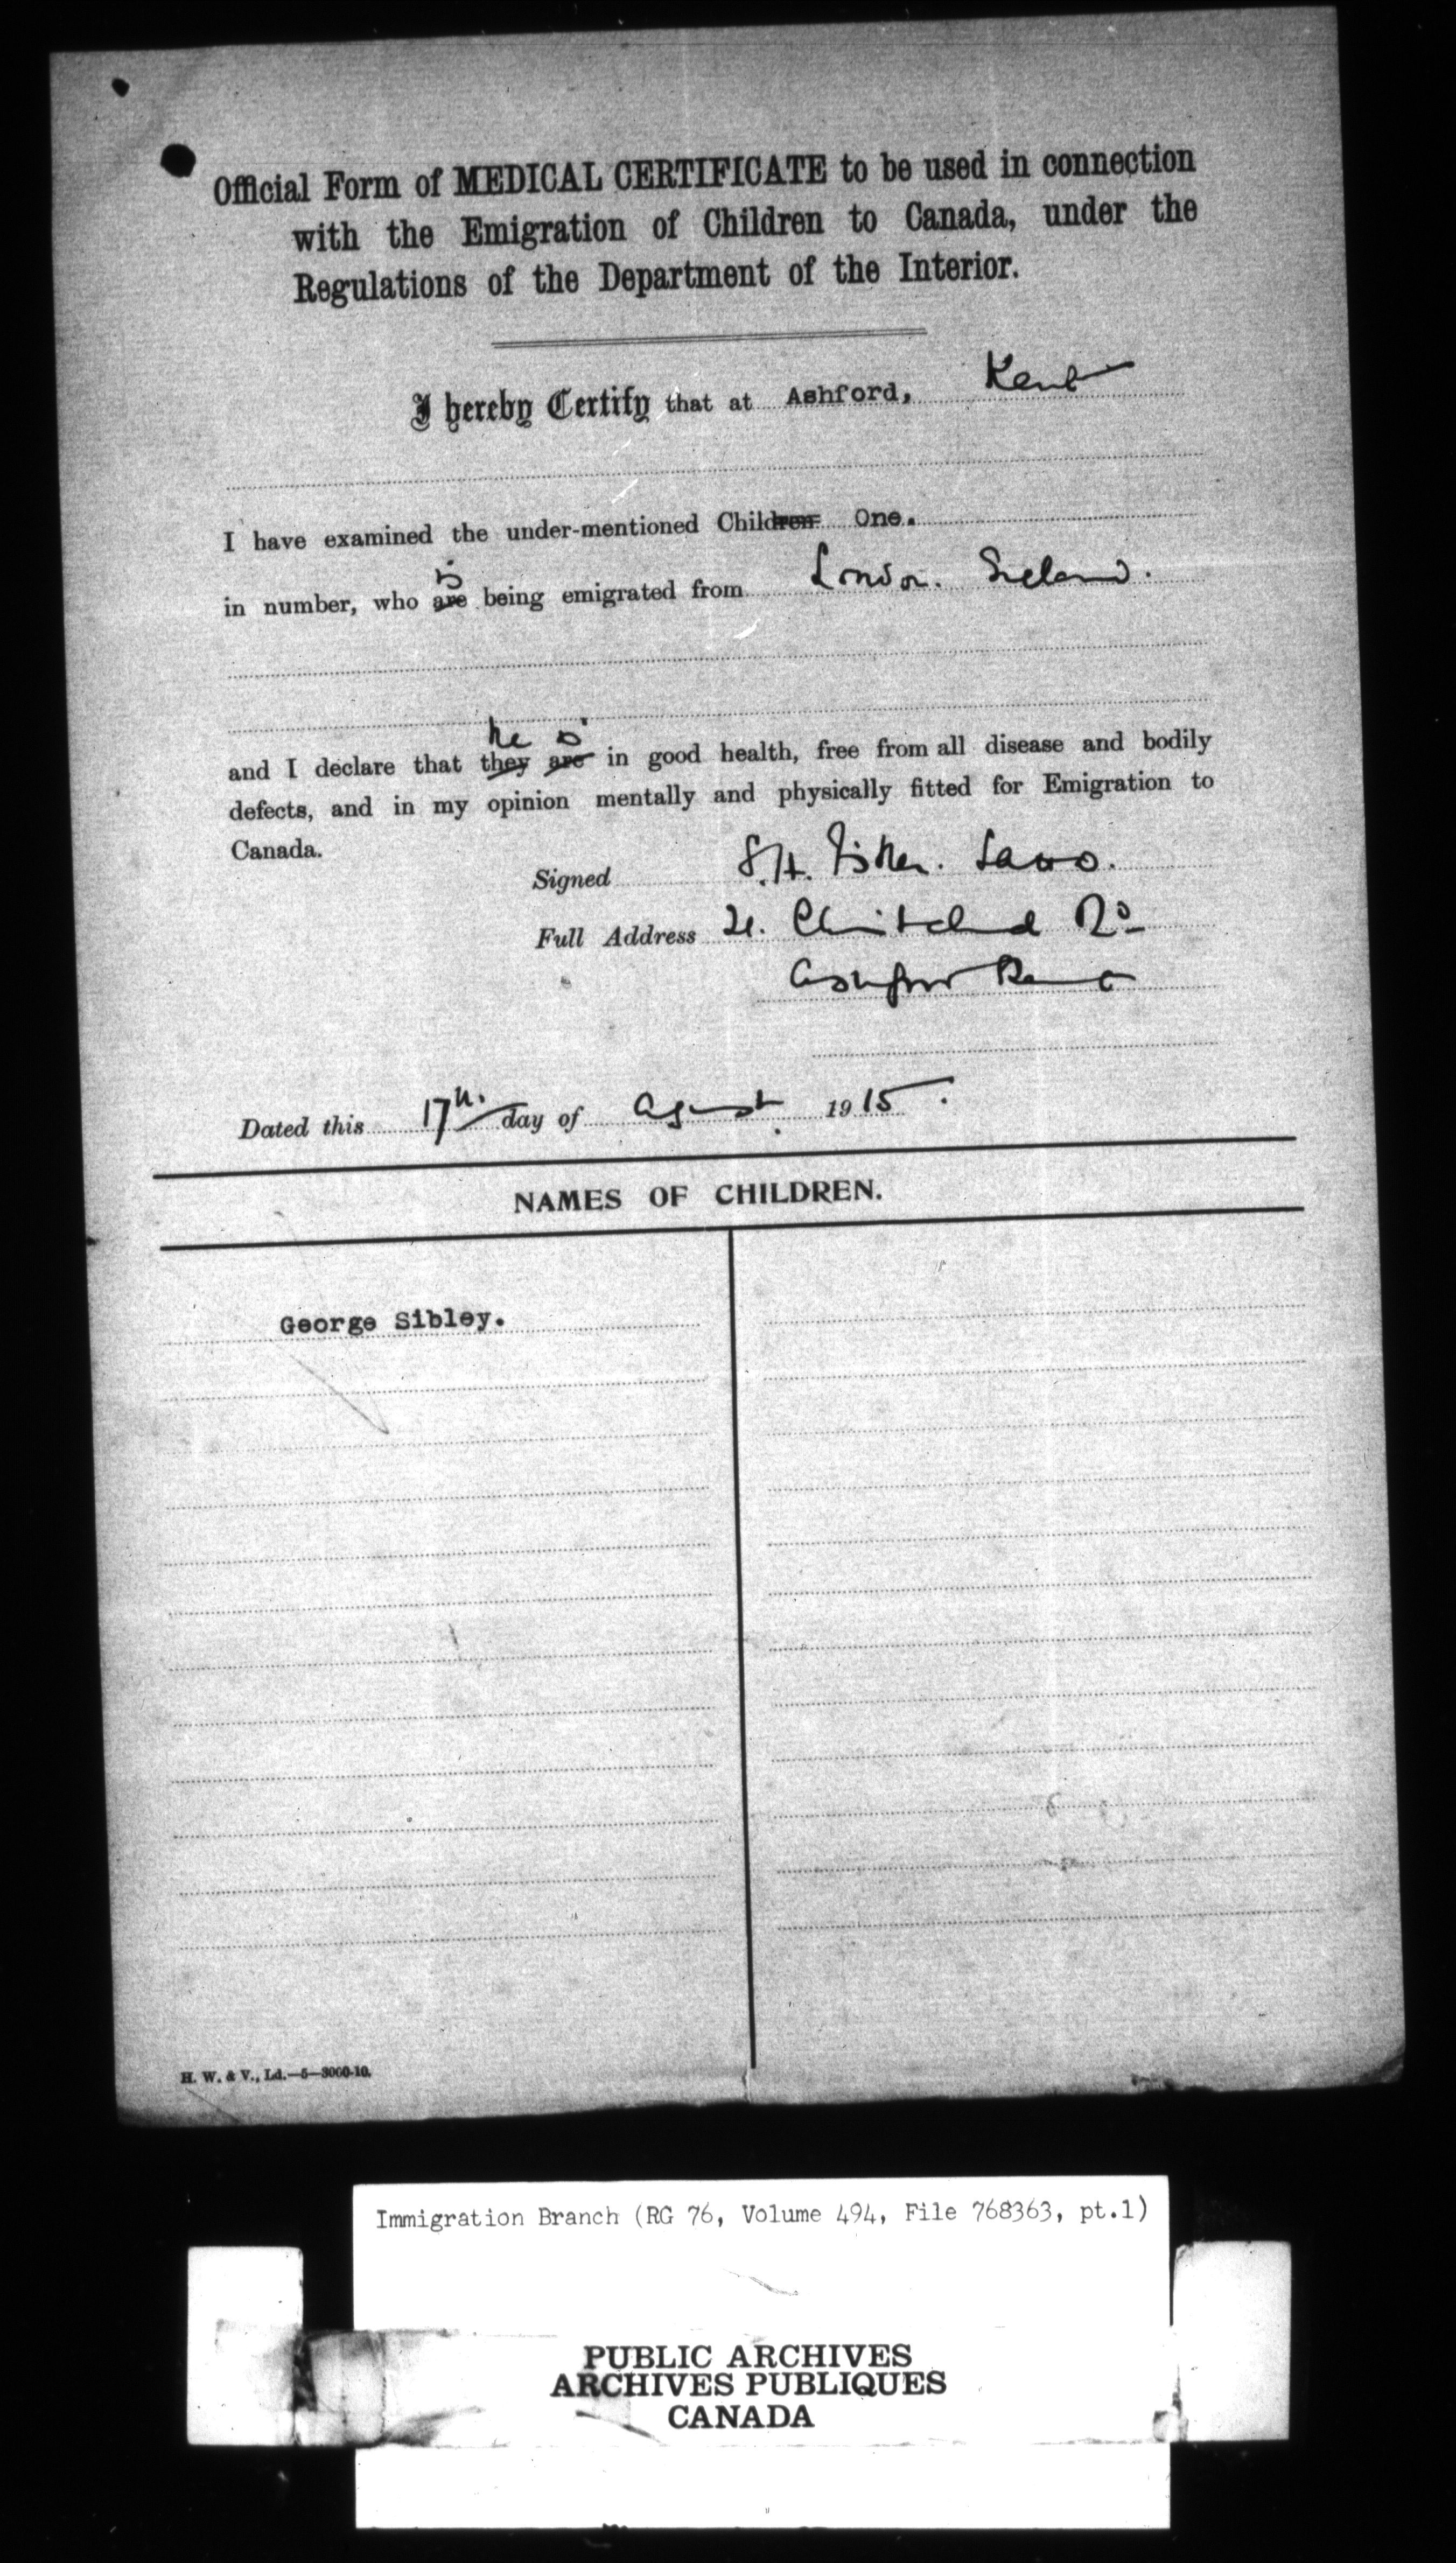 Official Form of MEDICAL CERTIFICATE to be used in connection
with the Emigration of Children to Canada, under the
Regulations of the Department of the Interior.
I hereby Certify that at Ashford, Kent
I have examined the under-mentioned Children One.
is
in number, who are being emigrated from London.
he is
and I declare that they are in good health, free from all disease and bodily
defects, and in my opinion mentally and physically fitted for Emigration to
Canada.
Signed
Full Address
Ashford Kent
Dated this 17th day of August 1915.
NAMES OF CHILDREN.
George Sibley.
H. W. & V., Ld.—5—3000-10.
Immigration Branch (RG 76, Volume 494, File 768363, pt.1)
PUBLIC ARCHIVES
ARCHIVES PUBLIQUES
CANADA